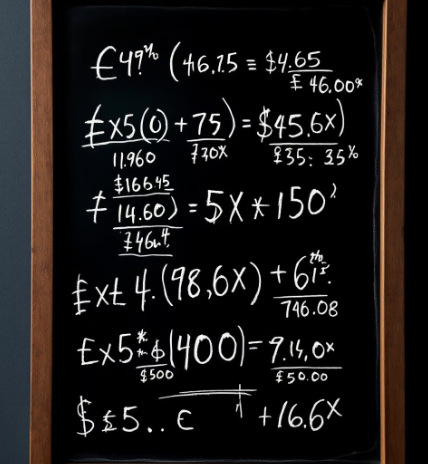 £49?% (46.75 = $4.65
£ 46.00x
£x5(0)+75) = $45.6x)
11.960 730x £35: 35%
$166.45
≠ 14.60) = 5x * 150?
746n4.
£xt 4.(98,6x) + 61
746.08
£x5 (400) = 9.14,0x
$500 $50.00
$£5.. € +16.6x